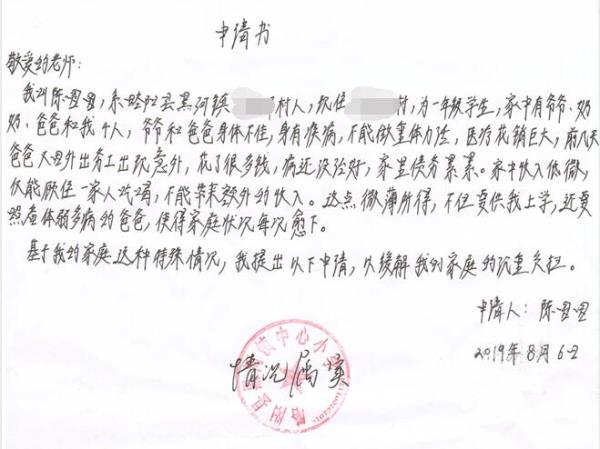 申请书
敬爱的老师:
我叫陈思思,系略阳县黑河镇 村人,现住 村,为一年级学生,家中有爷爷、奶
奶、爸爸和我4人,爷爷和爸爸身体不佳,身有疾病,不能做重体力活,医疗花销巨大,前几天
爸爸 外出务工出现意外,花了很多钱,病还没治好,家里债务累累。家中收入低微,
仅能顾住一家人吃喝,不能带来额外的收入。这点微薄所得,不但要供我上学,还要
照查体弱多病的爸爸,使得家庭状况每况愈下。
基于我的家庭这种特殊情况,我提出以下申请,以缓解我们家庭的沉重负担。
申请人:陈思思
2019年8月6日
情况属实
略阳县 镇中心小学